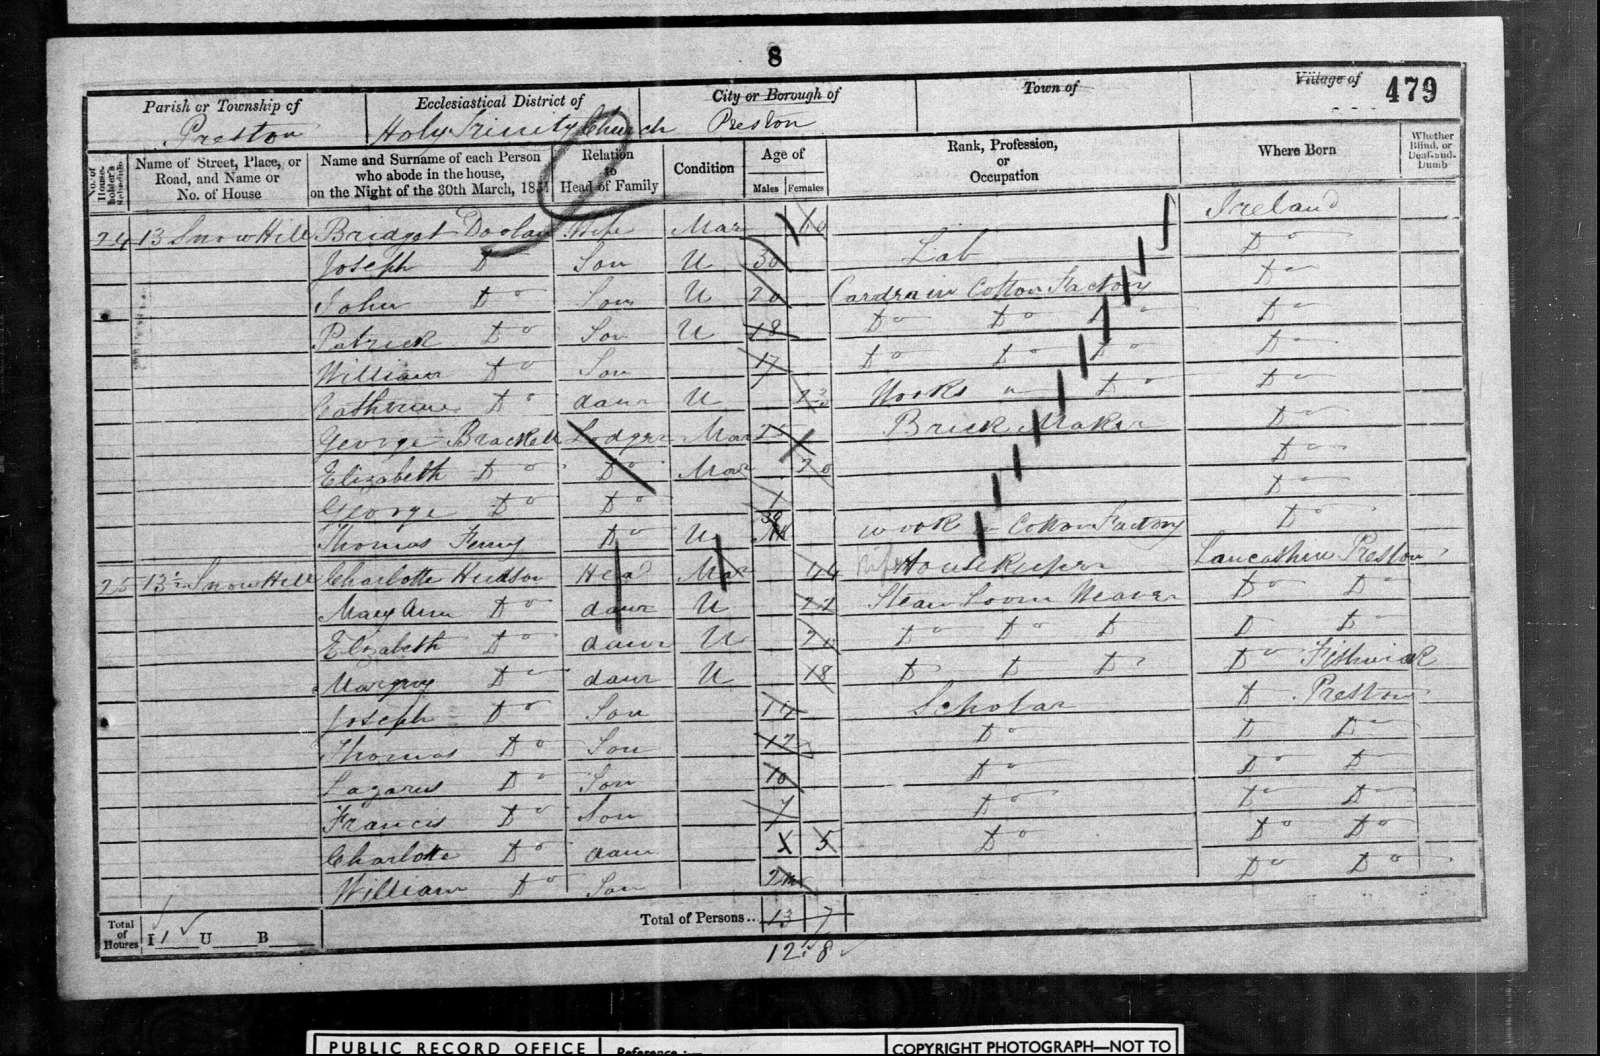 8
479
Parish or Township of Ecclesiastical District of City or Borough of Town of Village of
Preston Holy Trinity Church Preston
No. of House-holder's Schedule Name of Street, Place, or Road, and Name or No. of House Name and Surname of each Person who abode in the house, on the Night of the 30th March, 1851 Relation to Head of Family Condition Age of Males Females Rank, Profession, or Occupation Where Born Whether Blind, or Deaf-and-Dumb
24 13 Snow Hill Bridget Doolan Wife Mar 60 Ireland
Joseph Do Son U 30 Lab Do
John Do Son U 20 Carder in Cotton Factory Do
Patrick Do Son U 18 Do Do Do Do
William Do Son 17 Do Do Do Do
Catherine Do daur U 23 Works in Do Do
George Brackell Lodger Mar 25 Brick Maker Do
Elizabeth Do Do Mar 20 Do
George Do Do 1 Do
Thomas Ferry Do U Work in Cotton Factory Do
25 13½ Snow Hill Charlotte Hudson Head Mar 44 Housekeeper Lancashire Preston
Mary Ann Do daur U 22 Steam Loom Weaver Do Do
Elizabeth Do daur U 20 Do Do D D Do
Margery Do daur U 18 D D D Do Fishwick
Joseph Do Son 14 Scholar D Preston
Thomas Do Son 12 Do D Do
Lazarus Do Son 10 Do Do D
Francis Do Son 7 Do Do Do
Charlotte Do daur 5 Do Do Do
William Do Son 2m Do Do
Total of Houses I 1 U B Total of Persons.. 13 7
12 8
PUBLIC RECORD OFFICE Reference :— COPYRIGHT PHOTOGRAPH—NOT TO